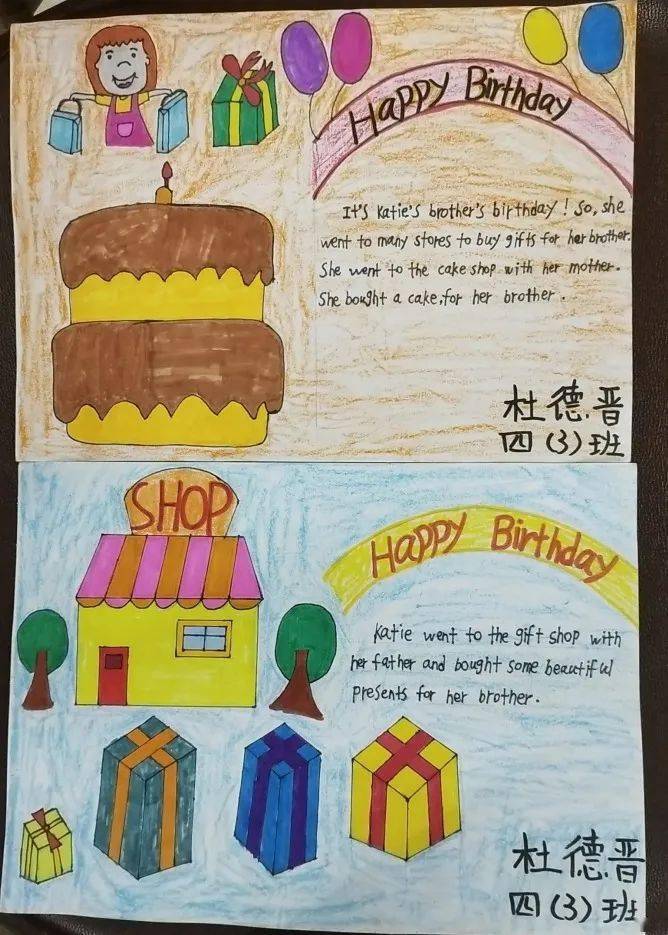 Happy Birthday
It's Katie's brother's birthday! So, she
went to many stores to buy gifts for her brother.
She went to the cake shop with her mother.
She bought a cake,for her brother.
杜德晋
四(3)班
SHOP
Happy Birthday
Katie went to the gift shop with
her father and bought some beautiful
presents for her brother.
杜德晋
四(3)班